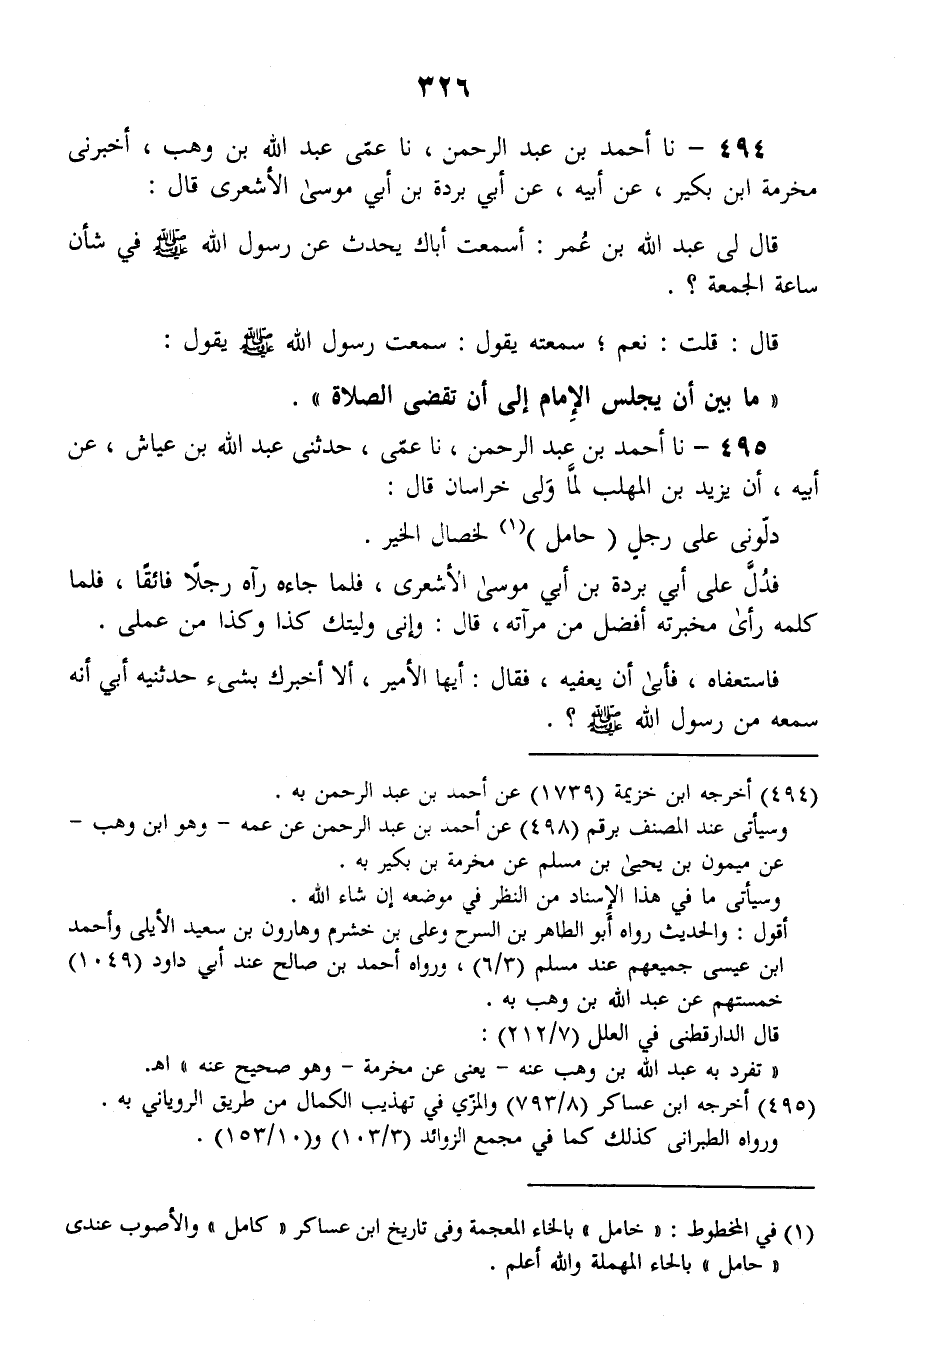 ٣٢٦
٤٩٤ – نا أحمد بن عبد الرحمن ، نا عمّى عبد الله بن وهب ، أخبرنى
مخرمة ابن بكير ، عن أبيه ، عن أبي بردة بن أبي موسىٰ الأشعرى قال :
قال لى عبد الله بن عُمر : أسمعت أباك يحدث عن رسول الله ﷺ في شأن
ساعة الجمعة ؟ .
قال : قلت : نعم ؛ سمعته يقول : سمعت رسول الله ﷺ يقول :
« ما بين أن يجلس الإِمام إلى أن تقضى الصلاة » .
٤٩٥ – نا أحمد بن عبد الرحمن ، نا عمّى ، حدثنى عبد الله بن عياش ، عن
أبيه ، أن يزيد بن المهلب لمَّا وَلى خراسان قال :
دلّونى على رجلٍ ( حامل )(١) لخصال الخير .
فدُلَّ على أبي بردة بن أبي موسىٰ الأشعرى ، فلما جاءه رآه رجلًا فائقًا ، فلما
كلمه رأىٰ مخبرته أفضل من مرآته، قال : وإنى وليتك كذا وكذا من عملى .
فاستعفاه ، فأبىٰ أن يعفيه ، فقال : أيها الأمير ، ألا أخبرك بشىء حدثنيه أبي أنه
سمعه من رسول الله ﷺ ؟ .
(٤٩٤) أخرجه ابن خزيمة (١٧٣٩) عن أحمد بن عبد الرحمن به .
وسيأتى عند المصنف برقم (٤٩٨) عن أحمد بن عبد الرحمن عن عمه – وهو ابن وهب –
عن ميمون بن يحيىٰ بن مسلم عن مخرمة بن بكير به .
وسيأتى ما في هذا الإسناد من النظر في موضعه إن شاء الله .
أقول : والحديث رواه أبو الطاهر بن السرح وعلى بن خشرم وهارون بن سعيد الأيلى وأحمد
ابن عيسى جميعهم عند مسلم (٦/٣) ، ورواه أحمد بن صالح عند أبي داود (١٠٤٩)
خمستهم عن عبد الله بن وهب به .
قال الدارقطنى في العلل (٢١٢/٧) :
« تفرد به عبد الله بن وهب عنه – يعنى عن مخرمة – وهو صحيح عنه » اهـ.
(٤٩٥) أخرجه ابن عساكر (٧٩٣/٨) والمزّي في تهذيب الكمال من طريق الروياني به .
ورواه الطبرانى كذلك كما في مجمع الزوائد (١٠٣/٣) و(١٥٣/١٠) .
(١) في المخطوط : « خامل » بالخاء المعجمة وفى تاريخ ابن عساكر « كامل » والأصوب عندى
« حامل » بالحاء المهملة والله أعلم .